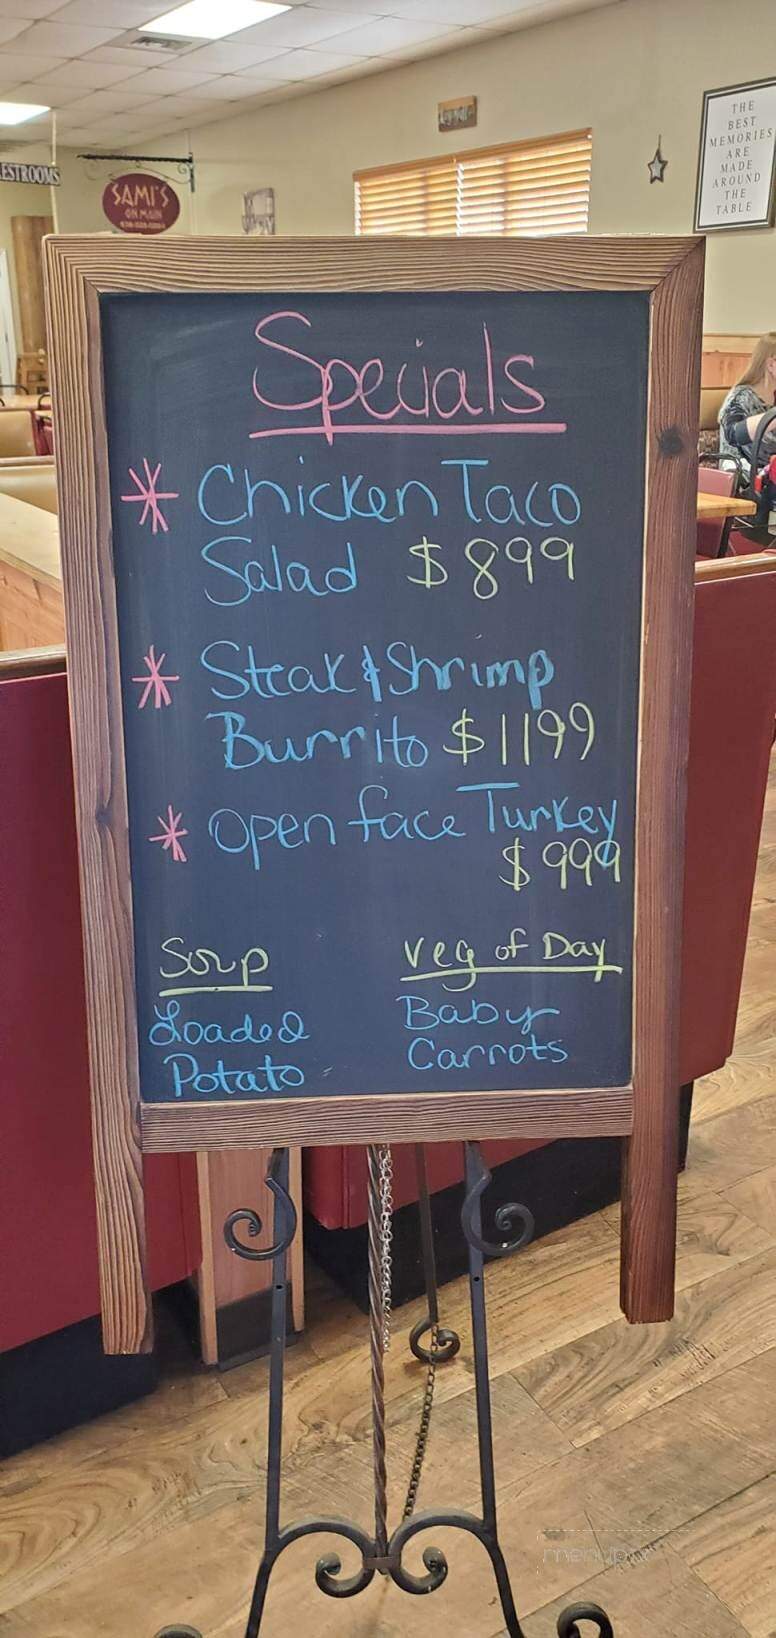 ESTROOMS
SAMI'S
ON MAIN
THE
BEST
MEMORIES
ARE
MADE
AROUND
THE
TABLE
Specials
* Chicken Taco
Salad $899
* Steak & Shrimp
Burrito $1199
* Open face Turkey
$999
Soup
Loaded
Potato
Veg of Day
Baby
Carrots